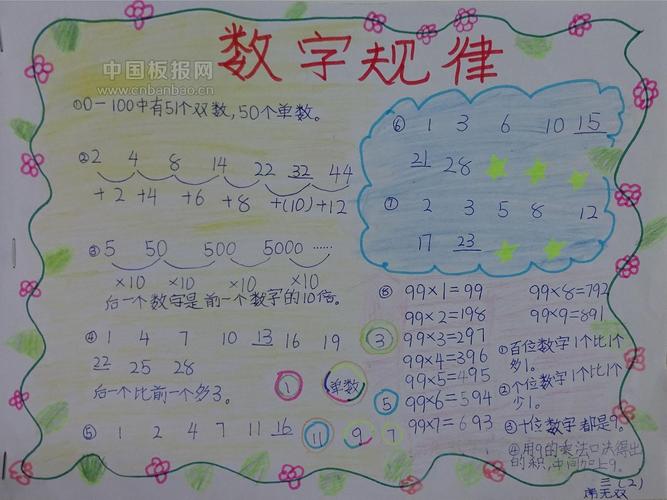 数字规律
中国板报网
www.cnbanbao.cn
①0—100中有51个双数,50个单数。
② 2 4 8 14 22 32 44
+2 +4 +6 +8 +(10) +12
③ 5 50 500 5000 ……
×10 ×10 ×10 ×10
后一个数字是前一个数字的10倍。
④ 1 4 7 10 13 16 19
22 25 28
后一个比前一个多3。
⑤ 1 2 4 7 11 16
① 单数 ③ ⑤ ⑦ ⑨ ⑪
⑥ 1 3 6 10 15
21 28
⑦ 2 3 5 8 12
17 23
⑧ 99×1=99
99×2=198
99×3=297
99×4=396
99×5=495
99×6=594
99×7=693
99×8=792
99×9=891
①百位数字1个比1个
多1。
②个位数字1个比1个
少1。
③十位数字都是9。
④用9的乘法口决得出
的积,中间加上9。
三(2)
无双